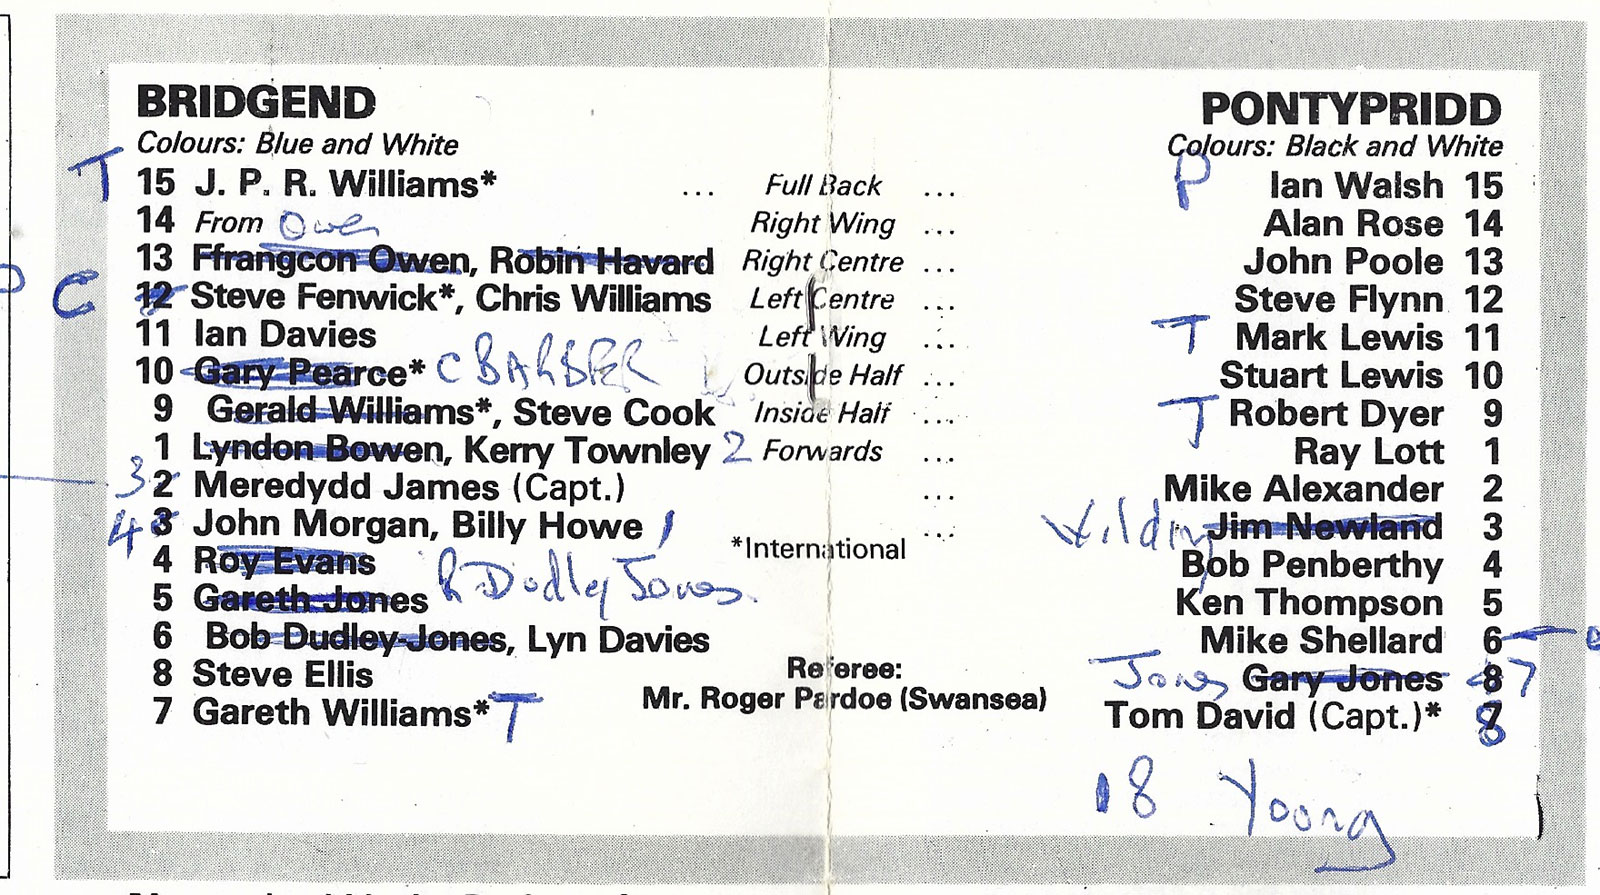 BRIDGEND
Colours: Blue and White
T 15 J. P. R. Williams* ... Full Back ...
14 From Owen Right Wing ...
13 Ffrangcon Owen, Robin Havard Right Centre ...
C 12 Steve Fenwick*, Chris Williams Left Centre ...
11 Ian Davies Left Wing ...
10 Gary Pearce* C BARBER Outside Half ...
9 Gerald Williams*, Steve Cook Inside Half ...
1 Lyndon Bowen, Kerry Townley 2 Forwards ...
3 2 Meredydd James (Capt.) ...
4 3 John Morgan, Billy Howe 1 ...
*International
4 Roy Evans
5 Gareth Jones R Dudley Jones
6 Bob Dudley-Jones, Lyn Davies
8 Steve Ellis
7 Gareth Williams* T
Referee:
Mr. Roger Pardoe (Swansea)
PONTYPRIDD
Colours: Black and White
P Ian Walsh 15
Alan Rose 14
John Poole 13
Steve Flynn 12
T Mark Lewis 11
Stuart Lewis 10
T Robert Dyer 9
Ray Lott 1
Mike Alexander 2
Wilding Jim Newland 3
Bob Penberthy 4
Ken Thompson 5
Mike Shellard 6
Jones Gary Jones 8 7
Tom David (Capt.)* 7 8
18 Young